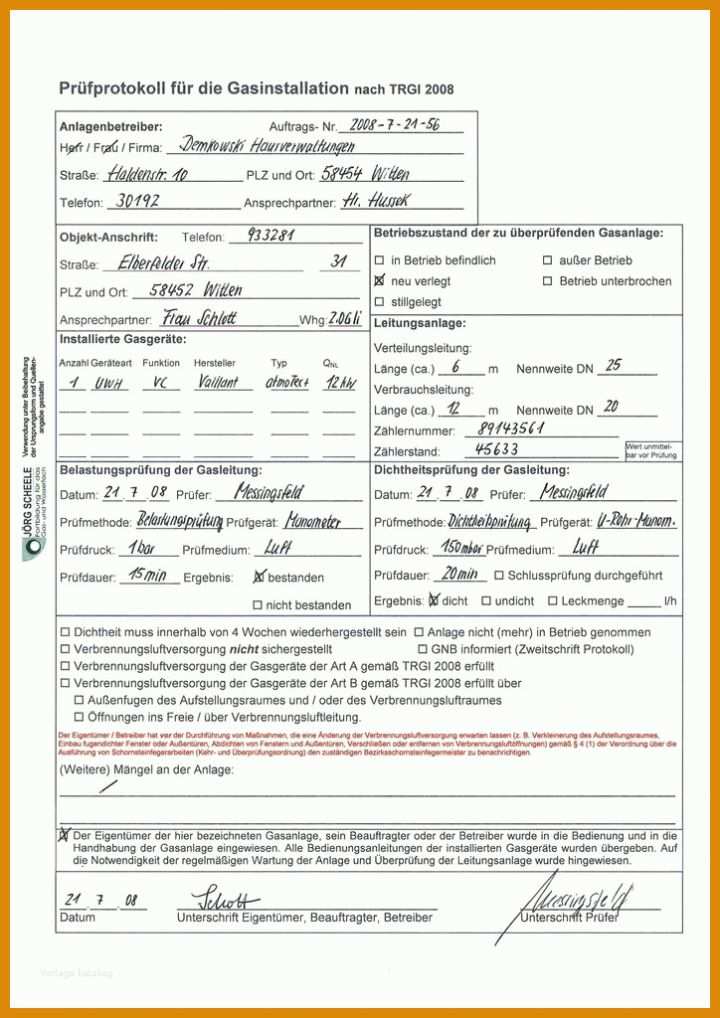 Prüfprotokoll für die Gasinstallation nach TRGI 2008
Anlagenbetreiber: Auftrags- Nr. 2008-7-21-56
Herr / Frau / Firma: Demkowski Hausverwaltungen
Straße: Haldenstr. 10 PLZ und Ort: 58454 Witten
Telefon: 30192 Ansprechpartner: Hr. Hussek
Objekt-Anschrift: Telefon: 933281
Straße: Elberfelder Str. 31
PLZ und Ort: 58452 Witten
Ansprechpartner: Frau Schlott Whg: 2.OG li
Betriebszustand der zu überprüfenden Gasanlage:
☐ in Betrieb befindlich ☐ außer Betrieb
☒ neu verlegt ☐ Betrieb unterbrochen
☐ stillgelegt
Installierte Gasgeräte:
Anzahl Geräteart Funktion Hersteller Typ QNL
1 UWH VC Vaillant atmoTect 12 kW
Leitungsanlage:
Verteilungsleitung:
Länge (ca.) 6 m Nennweite DN 25
Verbrauchsleitung:
Länge (ca.) 12 m Nennweite DN 20
Zählernummer: 89143561
Zählerstand: 45633
Wert unmittel-
bar vor Prüfung
Belastungsprüfung der Gasleitung:
Datum: 21 . 7 . 08 Prüfer: Messingsfeld
Prüfmethode: Belastungsprüfung Prüfgerät: Manometer
Prüfdruck: 1 bar Prüfmedium: Luft
Prüfdauer: 15 min Ergebnis: ☒ bestanden
☐ nicht bestanden
Dichtheitsprüfung der Gasleitung:
Datum: 21 . 7 . 08 Prüfer: Messingsfeld
Prüfmethode: Dichtheitsprüfung Prüfgerät: U-Rohr-Manom.
Prüfdruck: 150 mbar Prüfmedium: Luft
Prüfdauer: 20 min ☐ Schlussprüfung durchgeführt
Ergebnis: ☒ dicht ☐ undicht ☐ Leckmenge _____ l/h
☐ Dichtheit muss innerhalb von 4 Wochen wiederhergestellt sein ☐ Anlage nicht (mehr) in Betrieb genommen
☐ Verbrennungsluftversorgung nicht sichergestellt ☐ GNB informiert (Zweitschrift Protokoll)
☐ Verbrennungsluftversorgung der Gasgeräte der Art A gemäß TRGI 2008 erfüllt
☐ Verbrennungsluftversorgung der Gasgeräte der Art B gemäß TRGI 2008 erfüllt über
☐ Außenfugen des Aufstellungsraumes und / oder des Verbrennungsluftraumes
☐ Öffnungen ins Freie / über Verbrennungsluftleitung.
Der Eigentümer / Betreiber hat vor der Durchführung von Maßnahmen, die eine Änderung der Verbrennungsluftversorgung erwarten lassen (z. B. Verkleinerung des Aufstellungsraumes,
Einbau fugendichter Fenster oder Außentüren, Abdichten von Fenstern und Außentüren, Verschließen oder entfernen von Verbrennungsluftöffnungen) gemäß § 4 (1) der Verordnung über die
Ausführung von Schornsteinfegerarbeiten (Kehr- und Überprüfungsordnung) den zuständigen Bezirksschornsteinfegermeister zu benachrichtigen.
(Weitere) Mängel an der Anlage:
☒ Der Eigentümer der hier bezeichneten Gasanlage, sein Beauftragter oder der Betreiber wurde in die Bedienung und in die
Handhabung der Gasanlage eingewiesen. Alle Bedienungsanleitungen der installierten Gasgeräte wurden übergeben. Auf
die Notwendigkeit der regelmäßigen Wartung der Anlage und Überprüfung der Leitungsanlage wurde hingewiesen.
21 . 7 . 08 Schott Messingsfeld
Datum Unterschrift Eigentümer, Beauftragter, Betreiber Unterschrift Prüfer
Verwendung unter Beibehaltung
der Ursprungsform und Quellen-
angabe gestattet!
JÖRG SCHEELE
Fortbildung für das
Gas- und Wasserfach